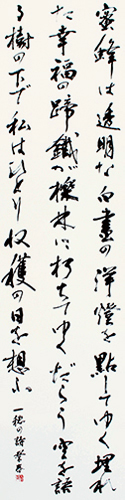 蜜蜂は透明な白晝の洋燈を點してゆく埋れ
た幸福の蹄鐵が櫟林に朽ちてゆくだらう空を語
る樹の下で私はひとり収穫の日を想ふ
一穂の詩